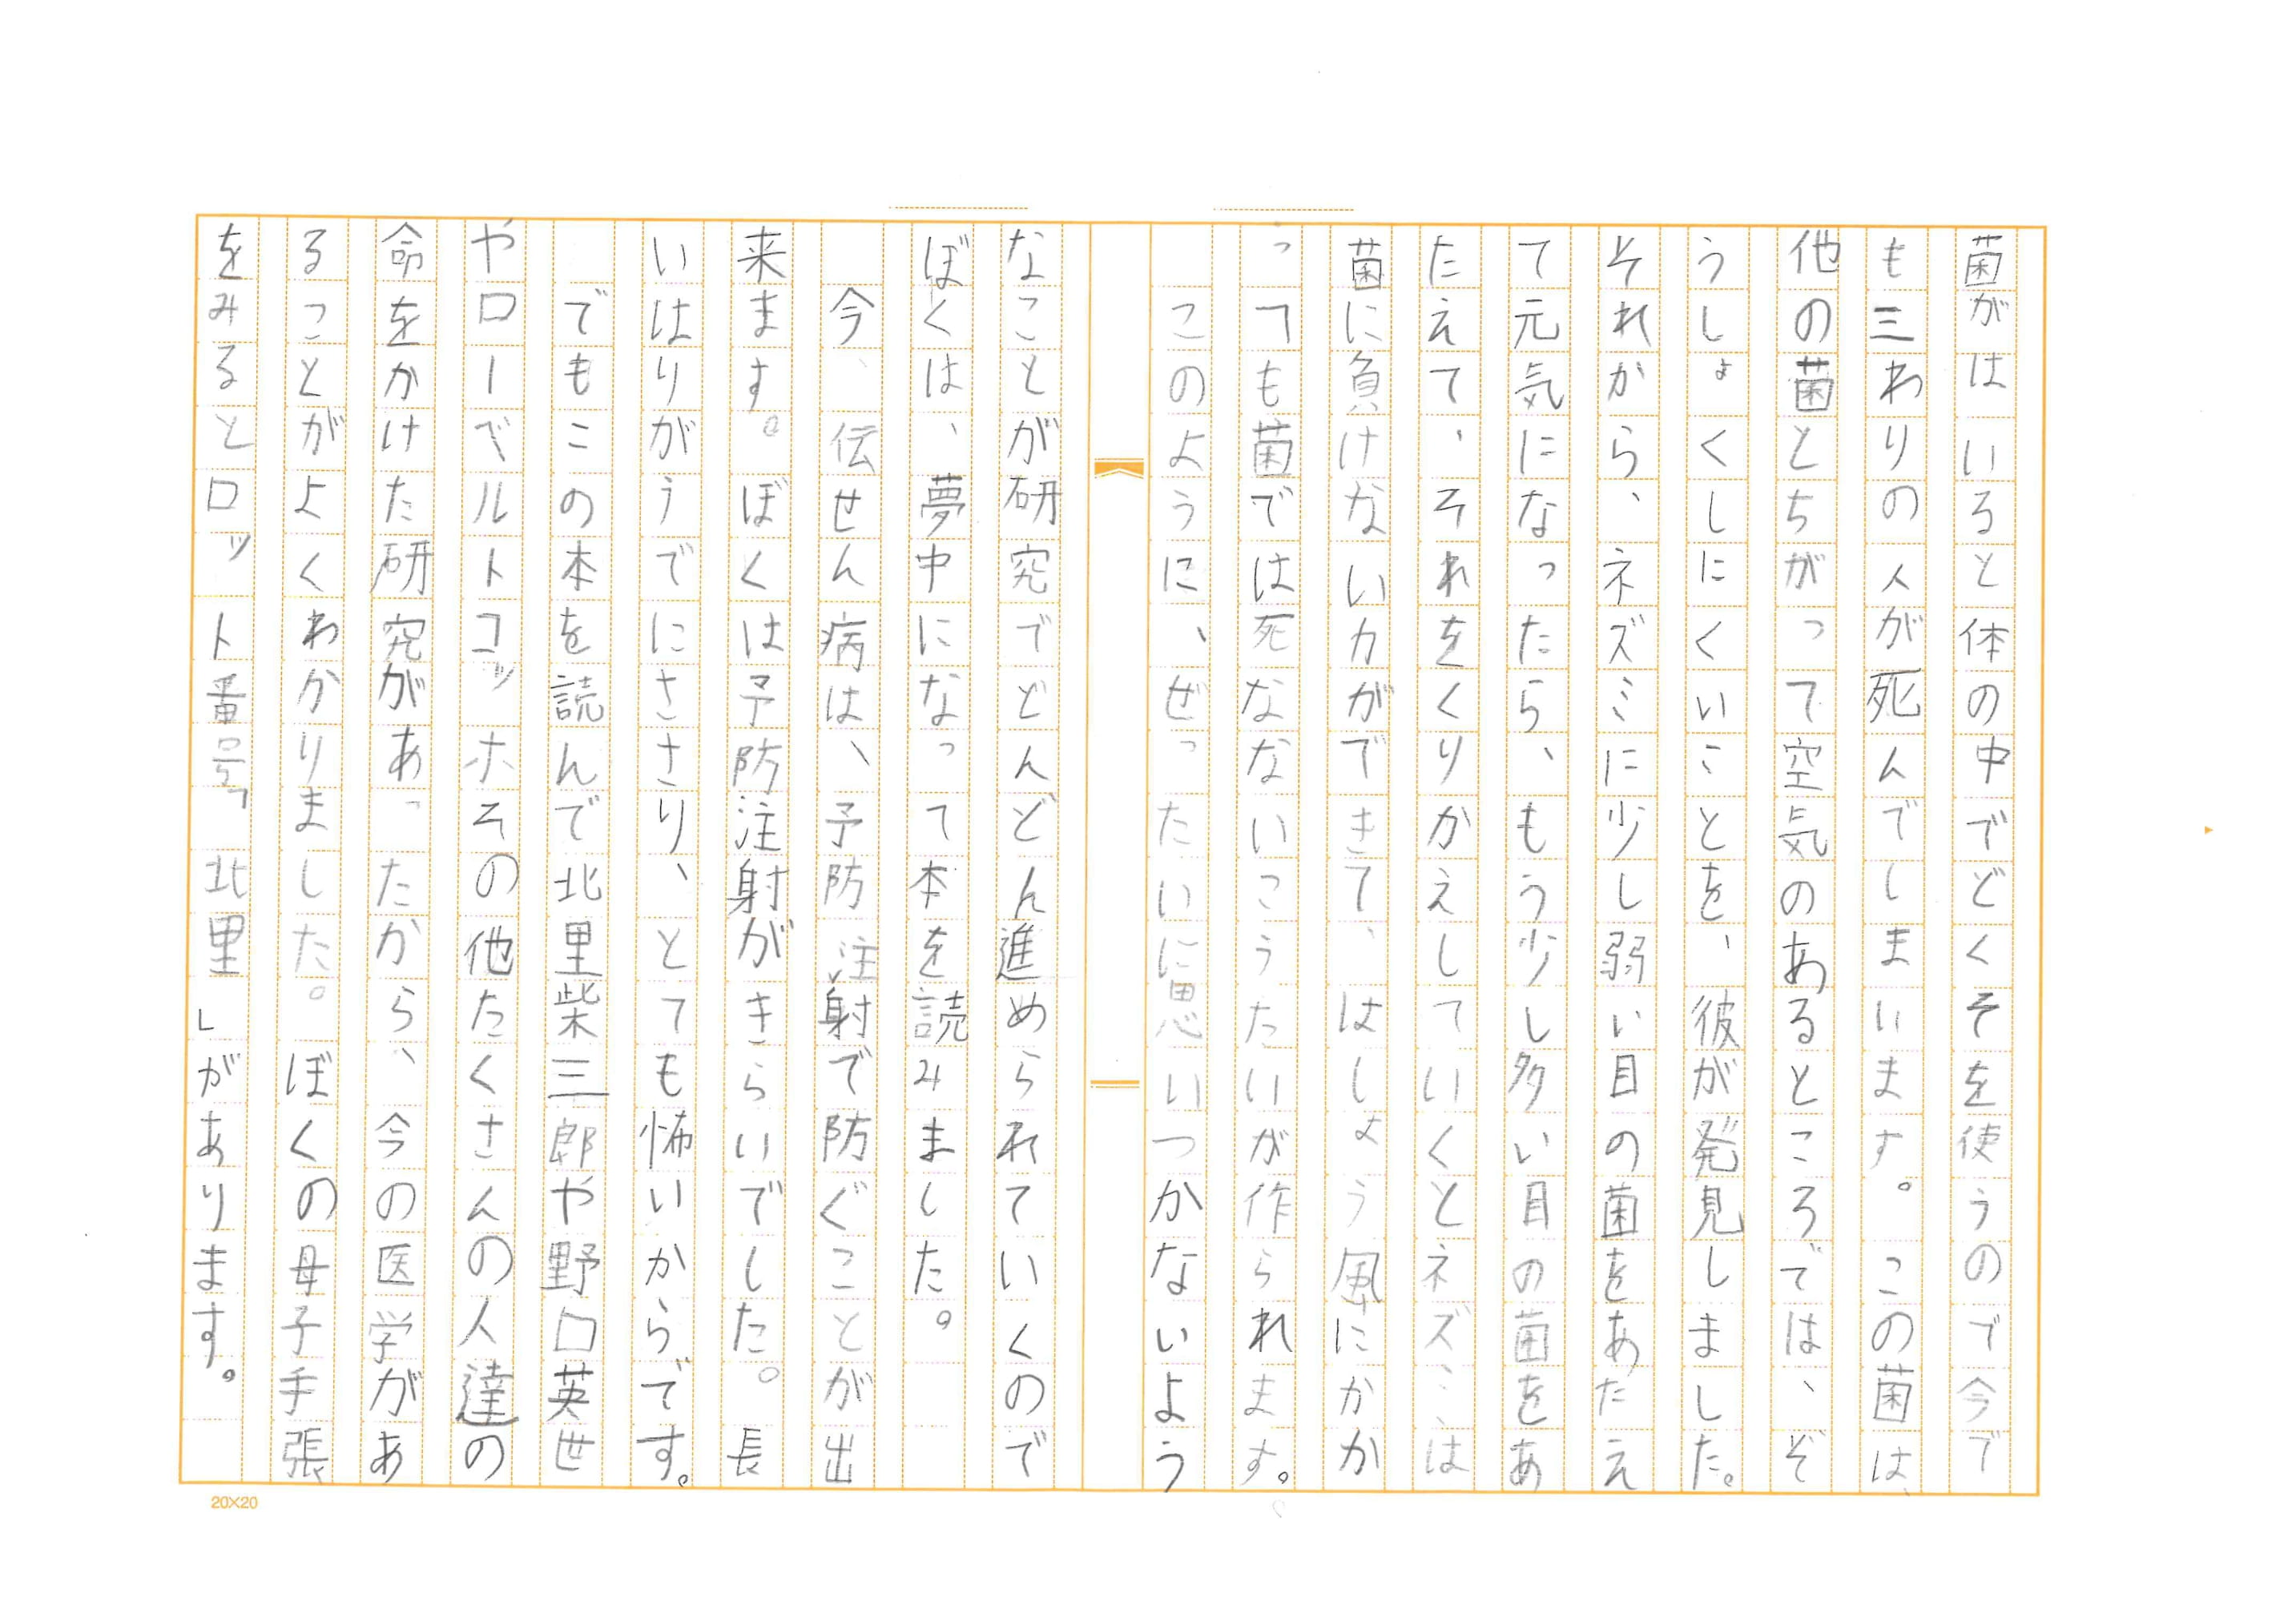 菌がはいると体の中でどくそを使うので今で
も三わりの人が死んでしまいます。この菌は、
他の菌とちがって空気のあるところでは、ぞ
うしょくしにくいことを、彼が発見しました。
それから、ネズミに少し弱い目の菌をあたえ
て元気になったら、もう少し多い目の菌をあ
たえて、それをくりかえしていくとネズミは
菌に負けない力ができて、はしょう風にかか
っても菌では死なないこうたいが作られます。
このように、ぜったいに思いつかないよう
なことが研究でどんどん進められていくので
ぼくは、夢中になって本を読みました。
今、伝せん病は、予防注射で防ぐことが出
来ます。ぼくは予防注射がきらいでした。長
いはりがうでにささり、とても怖いからです。
でもこの本を読んで北里柴三郎や野口英世
やローベルトコッホその他たくさんの人達の
命をかけた研究があったから、今の医学があ
ることがよくわかりました。ぼくの母子手張
をみるとロット番号「北里」があります。
20×20